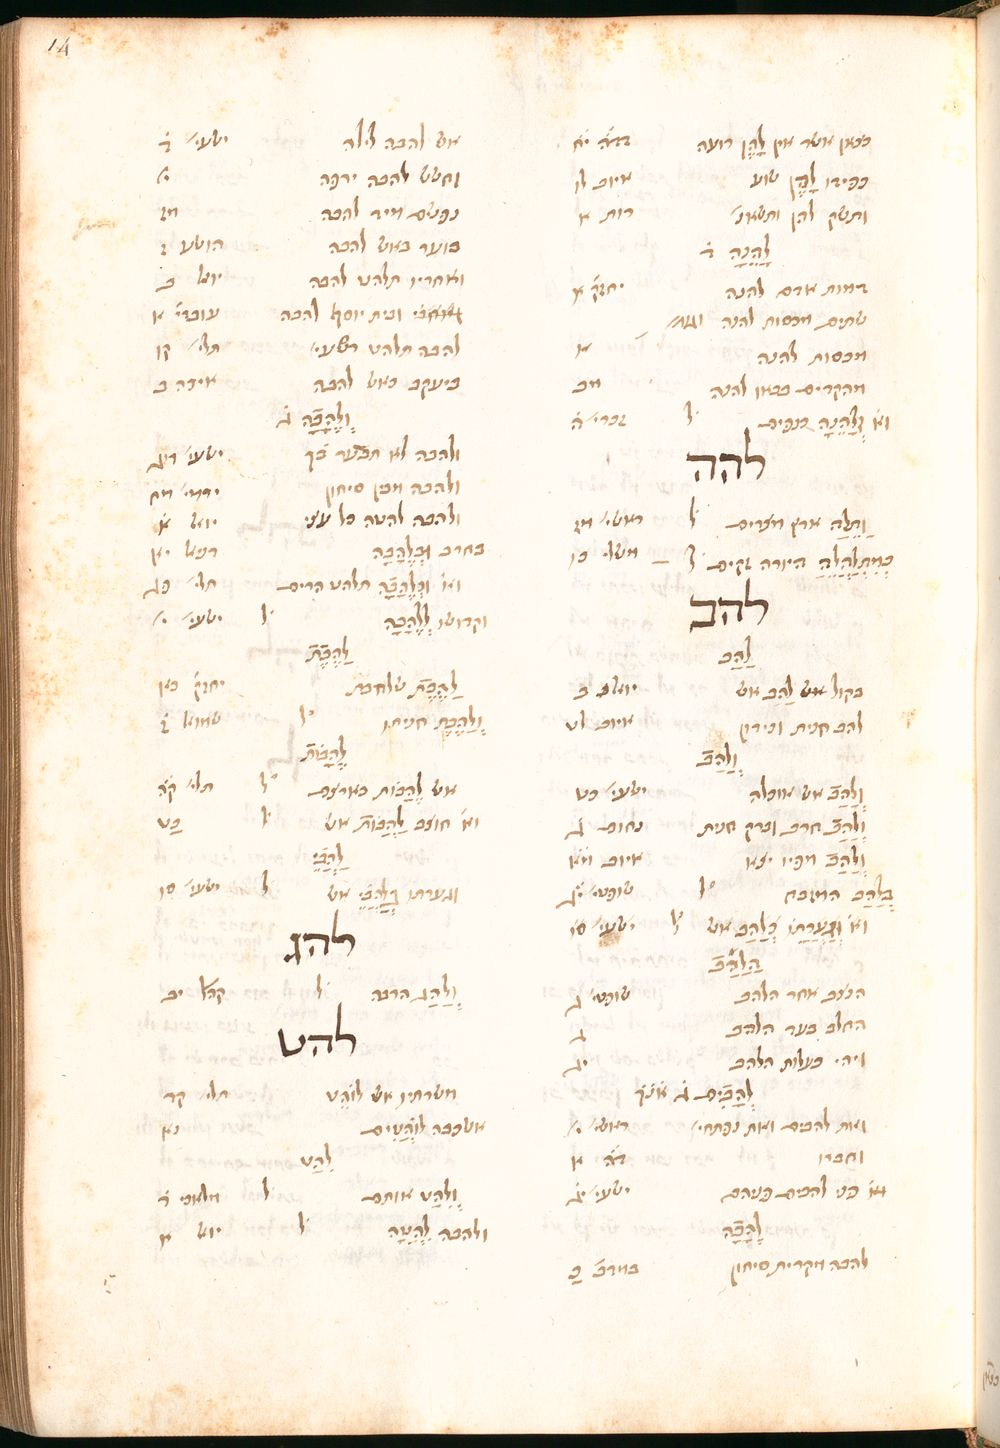 14
כצאן אשר אין לָהֶן רועה דה֗ יח
כפירו לָהֶן שוע איוב לו
ותשק להן ותשאנ׳ רות א
לָהֵנָה ד֗
דמות אדם להנה יחזק֗ א
שתים מכסות להנה
מכסות להנה א
מהקדים בבאו להנה מב
וא֗ וְלָהֵנָה כנפים ל֗ זכרי׳ ה֗
להה
וַתֵלַהּ ארץ מצרים ל֗ ראשי׳ מז
כְמִתְלַהְלֵהַּ היורה זקים ל֗ משלי כו
להב
לַהַב
כקול אש להב אש יואל ב
להב חנית וכידון איוב לט
וְלַהַב
וְלַהַב אש אוכלה ישעי׳ כט
וְלַהַב חרב וברק חנית נחום ג
וְלַהַב מפיו יצא איוב מא
בְלַהַב המזבח ל֗ שופטי׳ יג
וא֗ וְגַעֲרָתוֹ בְלַהֲבֵי אש ל֗ ישעי׳ סו
הַלַהַב
הנצב אחר הלהב שופטי׳ ג
החלב בעד הלהב ג
ויהי בעלות הלהב יג
לְהָבִים ג֗
ואת להבים ואת נפתחי׳ ראשי׳ י׳
וחברו דה֗ א
וא֗ פני להבים פניהם ישעי׳ יג
לֶהָבָה
להבה מקרית סיחון במדב֗ כ
אש להבה לילה ישעי׳ ד֗
וחשש להבה ירפה י׳
נפשם מיד להבה מז
בוער כאש להבה הושע ז
ואחריו תלהט להבה יואל ב
ובית יוסף להבה עובדי׳ א
להבה תלהט רשעי׳ תלי׳ קו
ביעקב כאש להבה איכה ב
וְלֶהָבָה ג֗
ולהבה לא תבער בך ישעי׳ מג
ולהבה מבין סיחון ירמי׳ מח
ולהבה להטה כל עצי יואל א֗
בחרב וּבְלֶהָבָה דניאל יא
וא֗ וּכְלֶהָבָה תלהט הרים תלי׳ פג
וקדושו לְלֶהָבָה ל֗ ישעי׳ י׳
לַהֶבֶת
לַהֶבֶת שלהבת יחזק֗ כא
וְלַהֶבֶת חניתו ל֗ שמואל ז֗
לֶהָבוֹת
אש לֶהָבוֹת בארצם ל֗ תלי׳ קה
וא֗ חוצב לַהֲבוֹת אש ל֗ כט
לַהֲבֵי
וגערתו בְלַהֲבֵי אש ל֗ ישעי׳ סו
להג
וְלַהַג הרבה ל֗ קהל׳ יב
להט
משרתיו אש לוֹהֵט תלי׳ קד
אשכבה לוֹהֲטִים נא
לִהַט
וְלִהַט אותם ל֗ מלאכי ד֗
ולהבה לִהֲטָה ל֗ יואל א